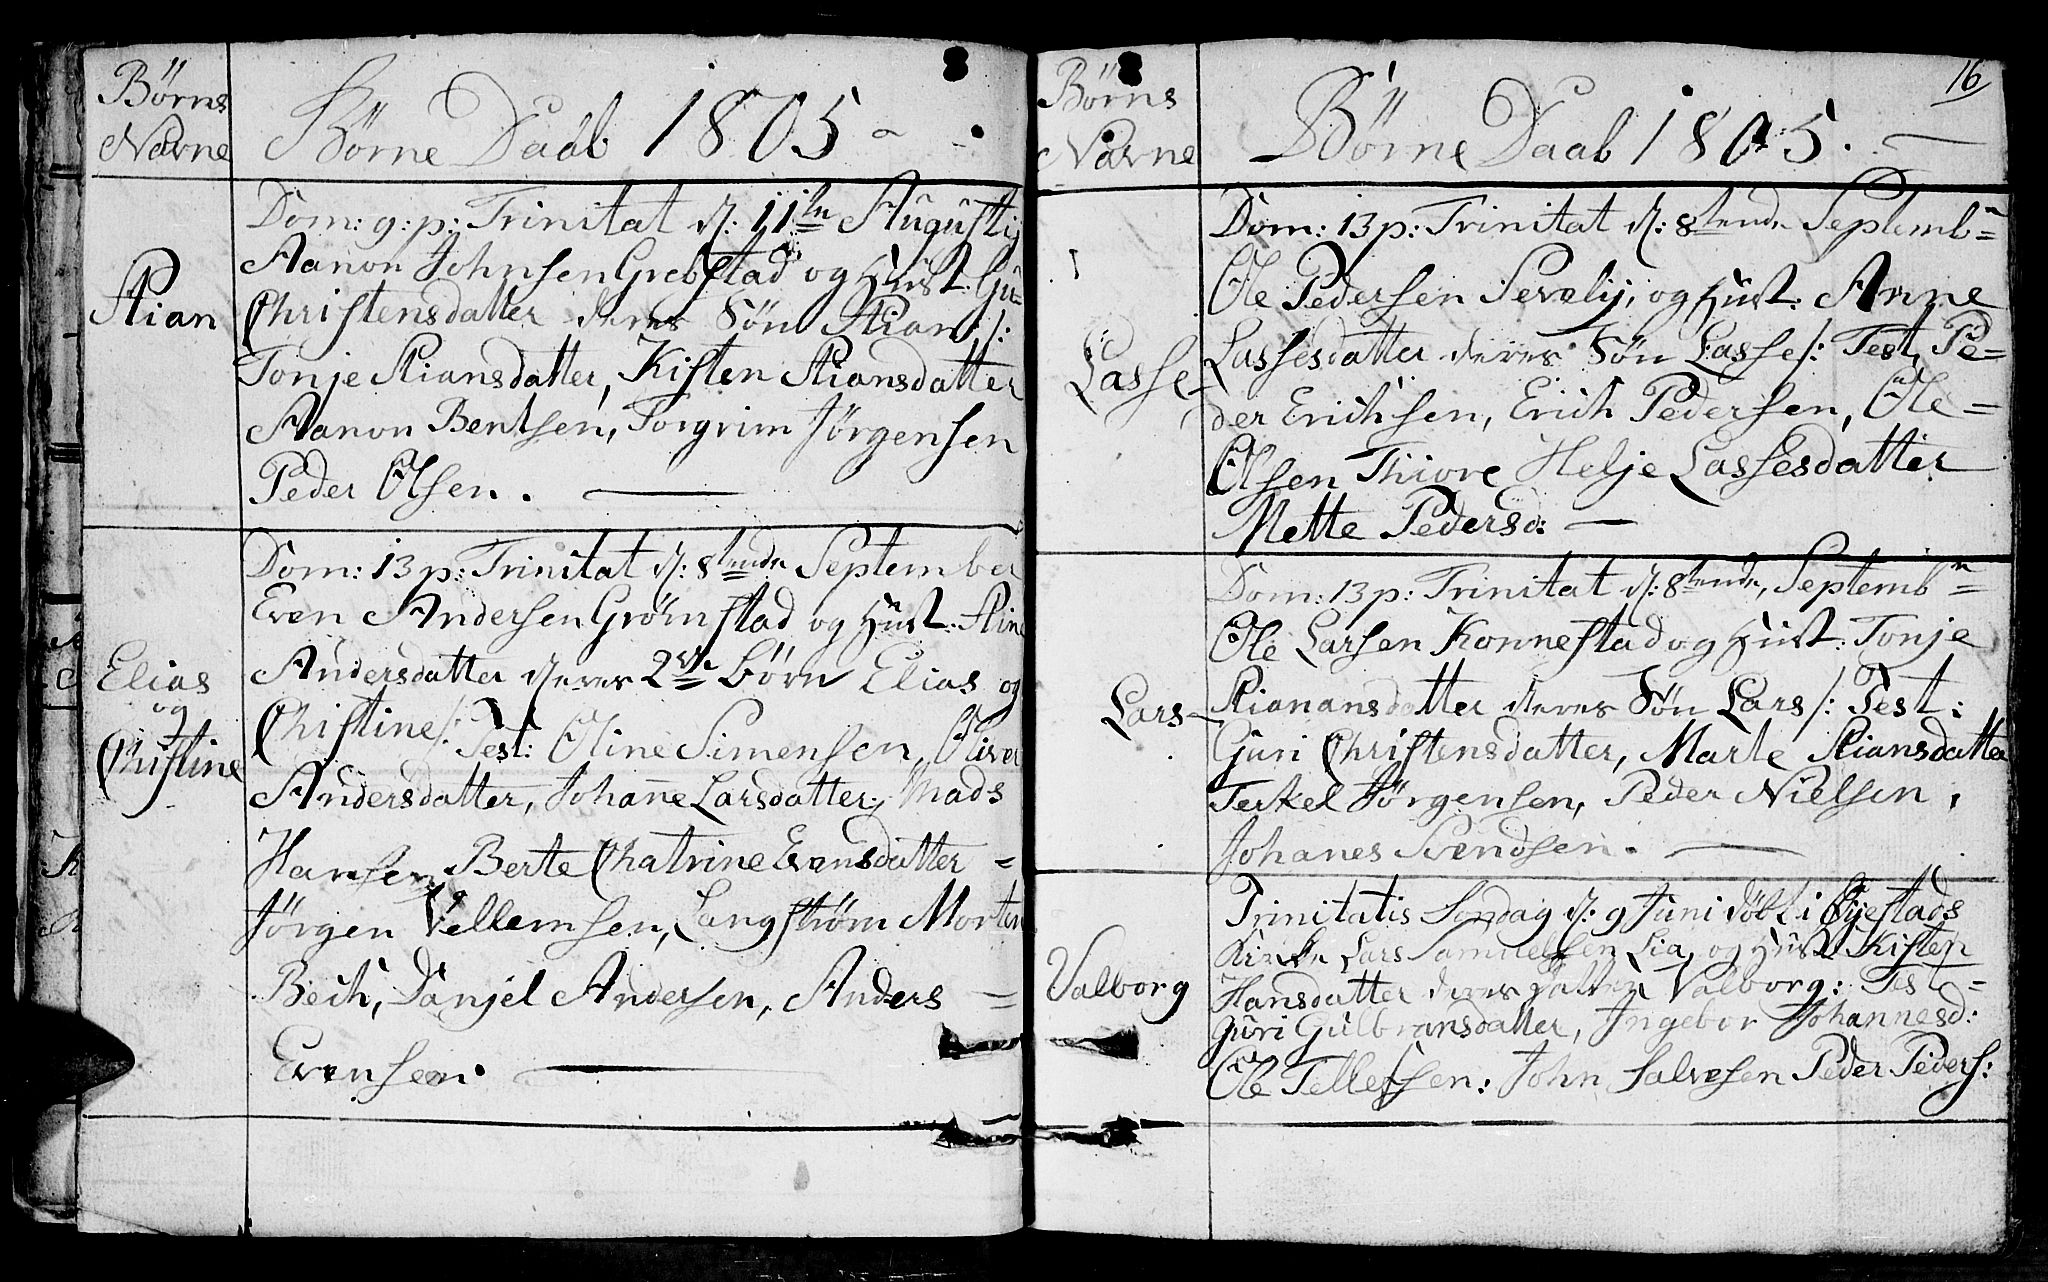 Børns
Navne
Børne Daab 1805 -
Stian
Dom: 9: p: Trinitat d: 11te Augustij
Aanon Johnsen Grebstad og Hust: Gu=
Christensdatter deres Søn Stian /:
Tonje Stiansdatter, Kisten Stiansdatter
Aanon Bentsen, Torgrim Jørgensen
Peder Olsen.
Elias
og
Christine
Dom: 13 p: Trinitat d: 8tende September
Even Andersen Grømstad og Hust: Stine
Andersdatter deres 2de børn Elias og
Christine /: Test: Oline Simensen, Oliver
Andersdatter, Johane Larsdatter, Mads
Hansen Berte Chatrine Evensdatter =
Jørgen Vellemsen, Langstrøm Morten
Bech, Danjel Andersen, Anders =
Evensen.
16
Børns
Navne
Børne Daab 1805.
Lasse
Dom: 13 p: Trinitat d: 8tende Septemb=
Ole Pedersen Sevelij, og Hust: Anne
Lassesdatter deres Søn Lasse /: Test, Pe=
der Erichsen, Erich Pedersen, Ole =
Olsen Thiore Helje Lassesdatter
Mette Pedersd:
Lars
Dom: 13 p: Trinitat d: 8tende, Septemb=
Ole Larsen Konnestad og Hust: Tonje
Stianansdatter deres Søn Lars /: Test:
Guri Christensdatter, Marte Stiansdatter
Terkel Jørgensen, Peder Nielsen,
Johanes Svendsen.
Valborg
Trinitatis Søndag d: 9 Juni døbt i Øyestads
Kirke Lars Samuelsen Lia, og Hust Kisten
Hansdatter deres datter Valborg: Test =
Guri Gulbransdatter, Ingebor Johannesd:
Ole Tellefsen: John Salvesen Peder Peders: